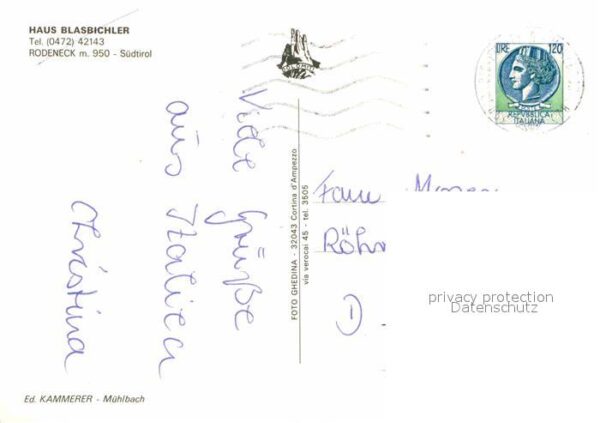 HAUS BLASBICHLER
Tel. (0472) 42143
RODENECK m. 950 - Südtirol
LIRE 120
REPVBBLICA
ITALIANA
Viele Grüße
aus Italien
Christina
FOTO GHEDINA - 32043 Cortina d'Ampezzo
via verocai 45 - tel. 3505
Frau
D
privacy protection
Datenschutz
Ed. KAMMERER - Mühlbach